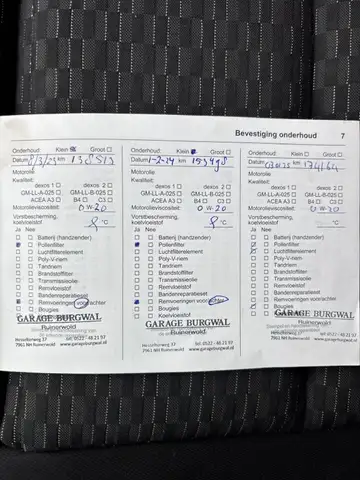 Bevestiging onderhoud 7
Onderhoud: Klein Groot
Datum 8/3/23 km 138513
Motorolie
Kwaliteit:
dexos 1 dexos 2
GM-LL-A-025 GM-LL-B-025
ACEA A3 B4 C3
Motorolieviscositeit: 0 W-20
Vorstbescherming, koelvloeistof °C
Ja Nee
Batterij (handzender)
Pollenfilter
Luchtfilterelement
Poly-V-riem
Tandriem
Brandstoffilter
Transmissieolie
Remvloeistof
Bandenreparatieset
Remvoeringen voor/achter
Bougies
GARAGE BURGWAL
Ruinerwold
Hesselterweg 37 tel: 0522 - 48 21 57
7961 NH Ruinerwold www.garageburgwal.nl
Onderhoud: Klein Groot
Datum 1-2-24 km 153498
Motorolie
Kwaliteit:
dexos 1 dexos 2
GM-LL-A-025 GM-LL-B-025
ACEA A3 B4 C3
Motorolieviscositeit: 0 W-20
Vorstbescherming, koelvloeistof °C
Ja Nee
Batterij (handzender)
Pollenfilter
Luchtfilterelement
Poly-V-riem
Tandriem
Brandstoffilter
Transmissieolie
Remvloeistof
Bandenreparatieset
Remvoeringen voor/achter
Bougies
Koelvloeistof
GARAGE BURGWAL
Ruinerwold
Hesselterweg 37 tel: 0522 - 48 21 57
7961 NH Ruinerwold www.garageburgwal.nl
Onderhoud: Klein Groot
Datum km 174164
Motorolie
Kwaliteit:
dexos 1 dexos 2
GM-LL-A-025 GM-LL-B-025
ACEA A3 B4 C3
Motorolieviscositeit: 0 W-20
Vorstbescherming, koelvloeistof °C
Ja Nee
Batterij (handzender)
Pollenfilter
Luchtfilterelement
Poly-V-riem
Tandriem
Brandstoffilter
Transmissieolie
Remvloeistof
Bandenreparatieset
Remvoeringen voor/achter
Bougies
GARAGE BURGWAL
Ruinerwold
Hesselterweg 37 tel: 0522 - 48 21 57
7961 NH Ruinerwold www.garageburgwal.nl